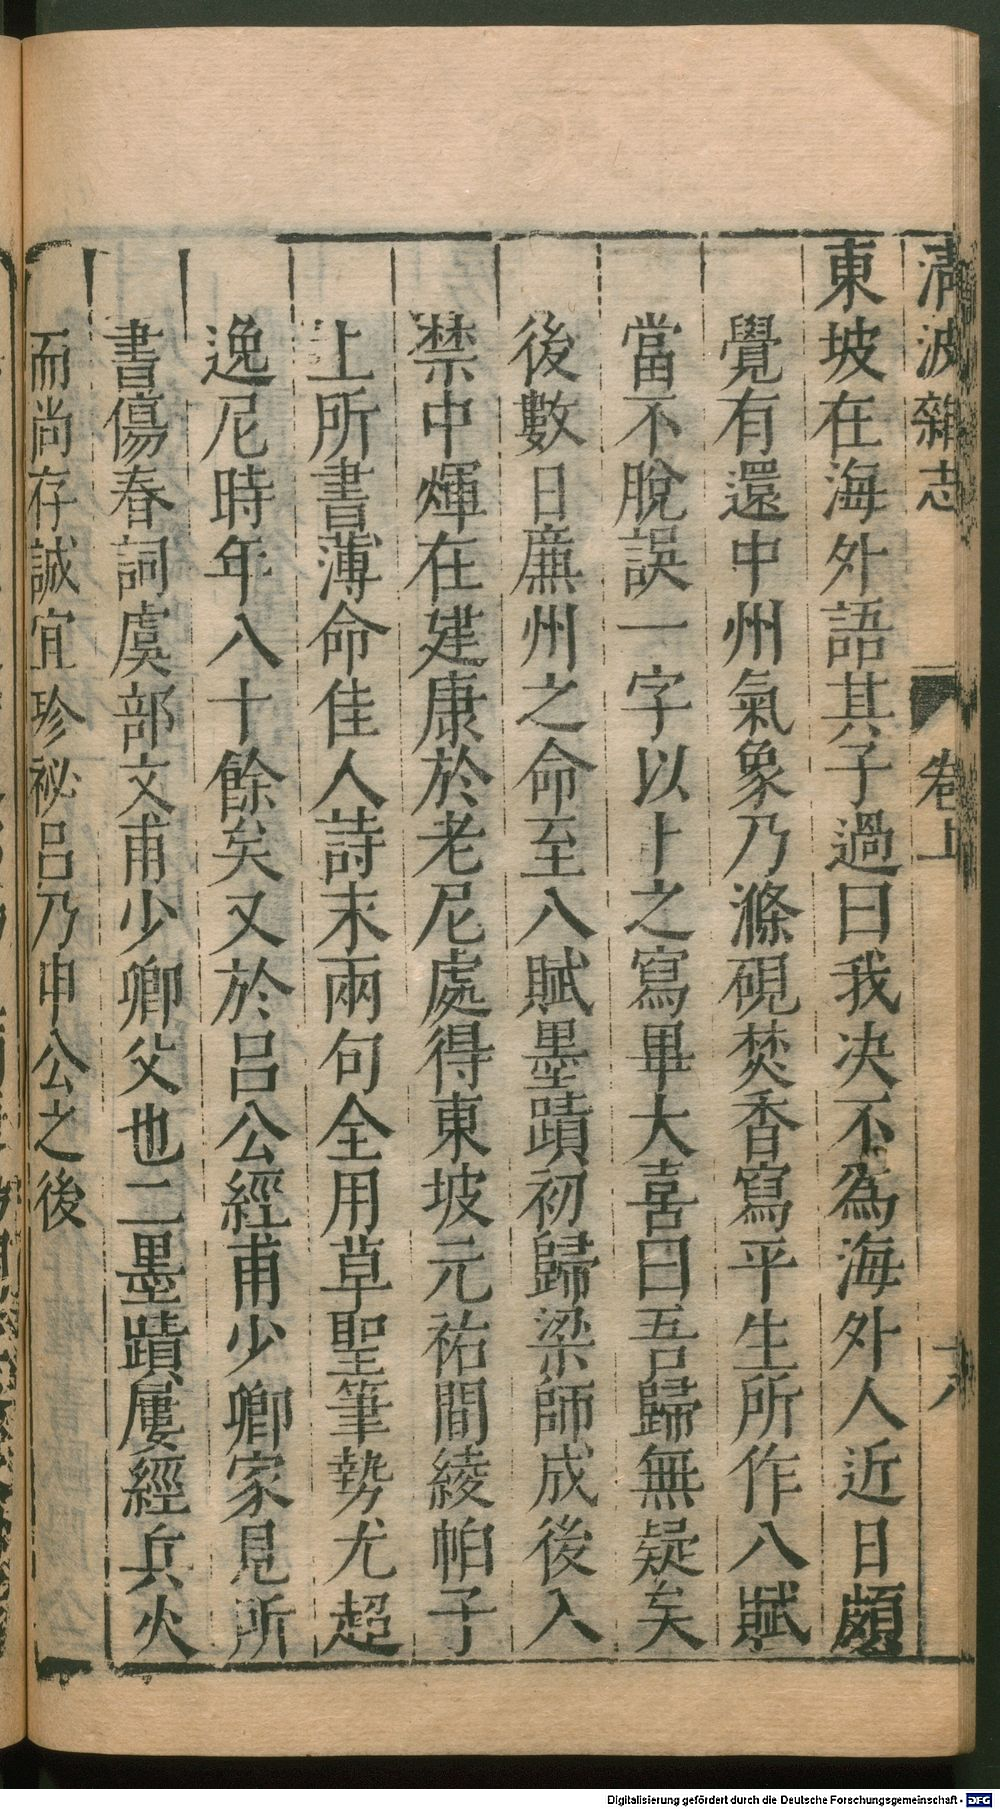 清波雜志 卷上 十八
東坡在海外語其子過曰我决不為海外人近日頗
覺有還中州氣象乃滌硯焚香寫平生所作八賦
當不脫誤一字以卜之寫畢大喜曰吾歸無疑矣
後數日廉州之命至八賦墨蹟初歸梁師成後入
禁中煇在建康於老尼處得東坡元祐間綾帕子
上所書薄命佳人詩末兩句全用草聖筆勢尤超
逸尼時年八十餘矣又於呂公經甫少卿家見所
書傷春詞虞部文甫少卿父也二墨蹟屢經兵火
而尚存誠宜珍祕呂乃申公之後
Digitalisierung gefördert durch die Deutsche Forschungsgemeinschaft - DFG